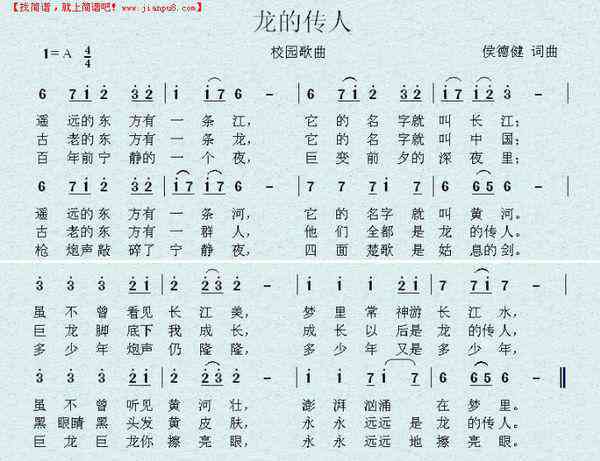 【找简谱，就上简谱吧！www.jianpu8.com】
龙的传人
1=A 4/4 校园歌曲 侯德健 词曲
6 7 i 2 3 2 | i i 7 6 - | 6 7 i 2 3 2 | i i 7 6 - |
遥 远的东 方有 一 条 江， 它 的 名 字就 叫 长 江；
古 老的东 方有 一 条 龙， 它 的 名 字就 叫 中 国；
百 年前宁 静的 一 个 夜， 巨 变 前 夕的 深 夜 里；
6 7 i 2 3 2 | i 7 i 7 6 - | 7 7 7 7 i 7 | 6 6 5 6 - |
遥 远的东 方有 一 条 河， 它 的 名字 就 叫 黄 河。
古 老的东 方有 一 群 人， 他 们 全都 是 龙 的传人。
枪 炮声敲 碎了 宁 静夜， 四 面 楚歌 是 姑 息的剑。
3 3 3 2 i | 2 2 3 2 - | i i i 2 i | 7 i 2 7 - |
虽 不 曾 看见 长 江 美， 梦 里 常 神游 长 江 水，
巨 龙 脚 底下 我 成 长， 成 长 以 后是 龙 的 传人，
多 少 年 炮声 仍 隆 隆， 多 少 年 又是 多 少 年，
3 3 3 2 i | 2 2 3 2 - | i i 7 i 7 | 6 6 5 6 - ‖
虽 不 曾 听见 黄 河 壮， 澎 湃 汹涌 在 梦 里。
黑 眼睛 黑 头发 黄 皮 肤， 永 永 远远 是 龙 的传人。
巨 龙 巨 龙你 擦 亮 眼， 永 永 远远 地 擦 亮 眼。